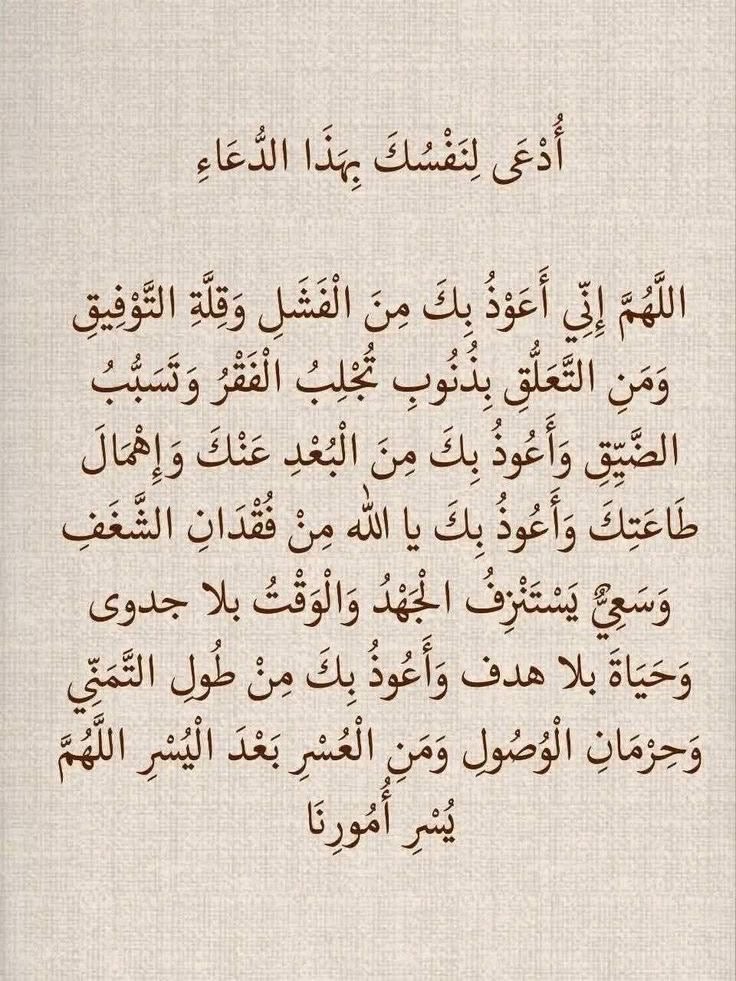 أُدْعَى لِنَفْسُكَ بِهَذَا الدُّعَاءِ
اللَّهُمَّ إِنِّي أَعَوْذُ بِكَ مِنَ الْفَشَلِ وَقِلَّةِ التَّوْفِيقِ
وَمَنِ التَّعَلُّقِ بِذُنُوبِ تُجْلِبُ الْفَقْرُ وَتَسَبُّبُ
الضَّيِّقِ وَأَعُوذُ بِكَ مِنَ الْبُعْدِ عَنْكَ وَإِهْمَالَ
طَاعَتِكَ وَأَعُوذُ بِكَ يا الله مِنْ فُقْدَانِ الشَّغَفِ
وَسَعِيٌّ يَسْتَنْزِفُ الْجَهْدُ وَالْوَقْتُ بلا جدوى
وَحَيَاةَ بلا هدف وَأَعُوذُ بِكَ مِنْ طُولِ التَّمَنِّي
وَحِرْمَانِ الْوُصُولِ وَمَنِ الْعُسْرِ بَعْدَ الْيُسْرِ اللَّهُمَّ
يُسْرِ أُمُورِنَا